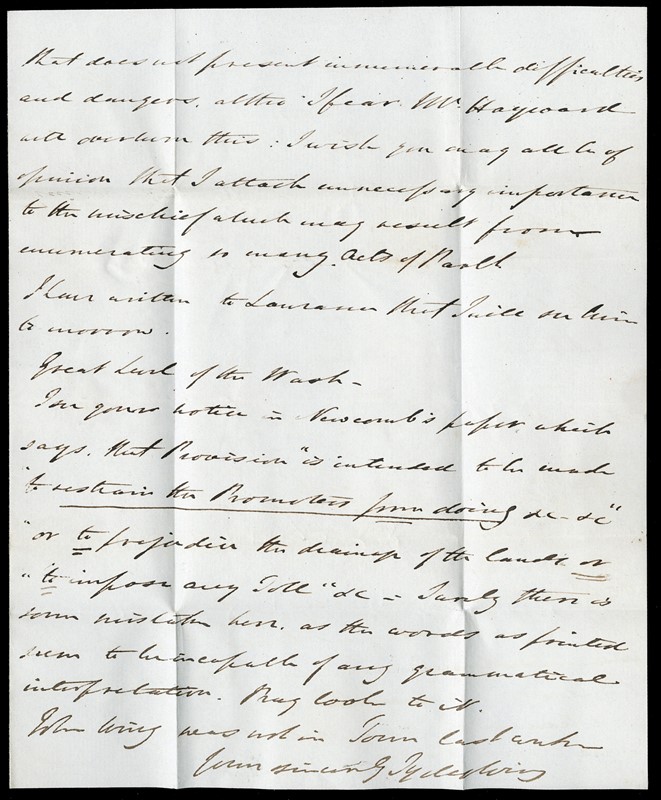 that does not present innumerable difficulties
and dangers, altho' I fear Mr Hayward
will overturn this: I wish you may all be of
opinion that I attach unnecessary importance
to the mischief which may result from
enumerating so many Acts of Parlt
I have written to Laurance that I will see him
to morrow.
Great Level of the Wash -
I see your notice in Newcomb's paper, which
says, that Provision "is intended to be made
"to restrain the Promoters from doing &c &c"
"or to prejudice the drainage of the lands or
"to impose any Toll" &c - Surely there is
some mistake here, as the words as printed
seem to be incapable of any grammatical
interpretation. Pray look to it.
John Wing was not in Town last week
Yours sincerely Tycho Wing